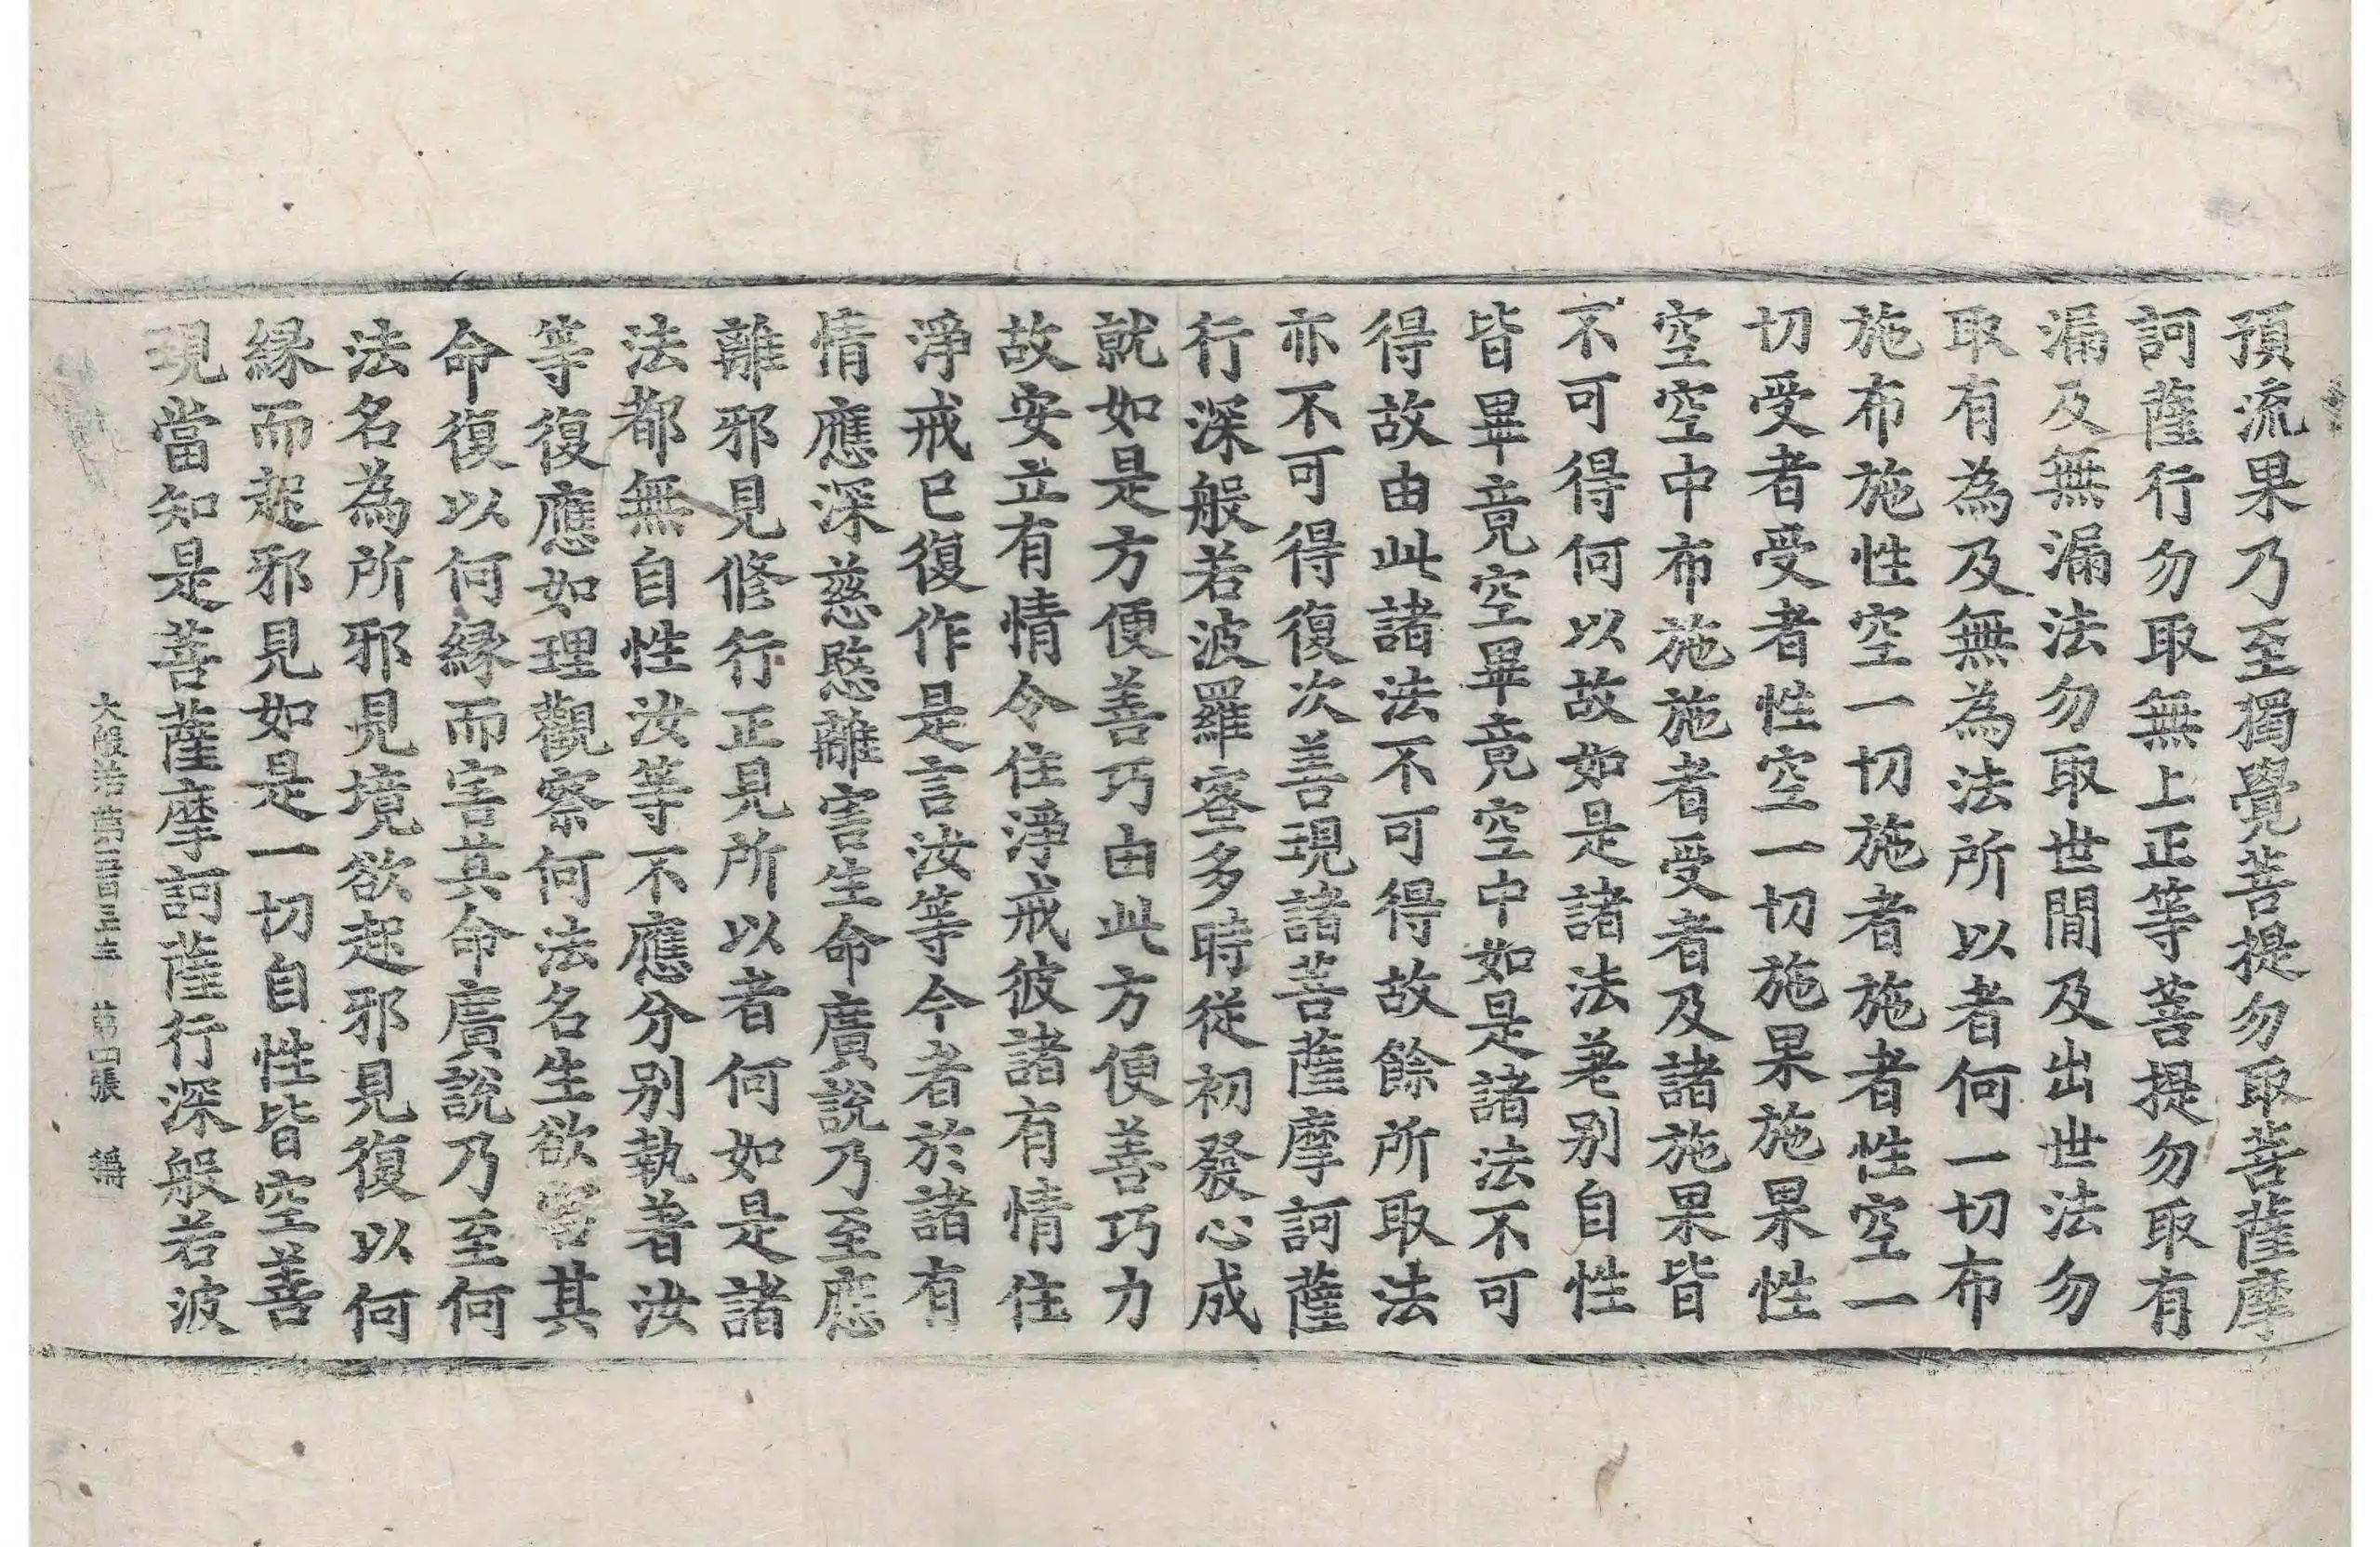 預流果乃至獨覺菩提勿取菩薩摩
訶薩行勿取無上正等菩提勿取有
漏及無漏法勿取世間及出世法勿
取有為及無為法所以者何一切布
施布施性空一切施者施者性空一
切受者受者性空一切施果施果性
空空中布施施者受者及諸施果皆
不可得何以故如是諸法差别自性
皆畢竟空畢竟空中如是諸法不可
得故由此諸法不可得故餘所取法
亦不可得復次善現諸菩薩摩訶薩
行深般若波羅蜜多時從初發心成
就如是方便善巧由此方便善巧力
故安立有情令住淨戒彼諸有情住
淨戒已復作是言汝等今者於諸有
情應深慈愍離害生命廣說乃至應
離邪見修行正見所以者何如是諸
法都無自性汝等不應分别執著汝
等復應如理觀察何法名生欲害其
命復以何縁而害其命廣說乃至何
法名為所邪見境欲起邪見復以何
縁而起邪見如是一切自性皆空善
現當知是菩薩摩訶薩行深般若波
大般若第 第四張